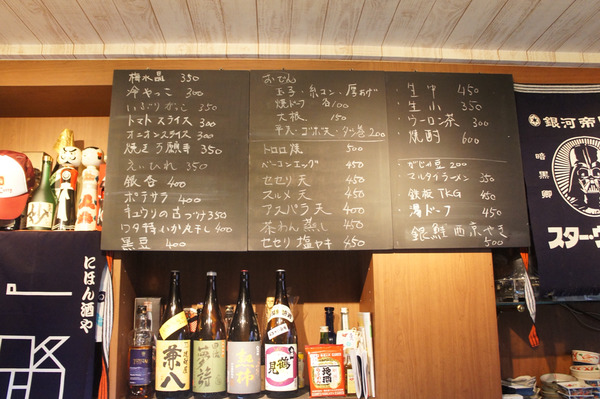 梅水晶 350
冷やっこ 300
いぶりがっこ 350
トマトスライス 300
オニオンスライス 300
焼き子願辛 350
えいひれ 350
銀杏 400
ポテサラ 400
キュウリの古づけ 350
ワタ付いか一夜干し 400
黒豆 400
おでん
玉子・糸コン・厚あげ
焼ドーフ 各100
大根 150
平天・ゴボ天・タコ巻 200
トロロ焼 500
ベーコンエッグ 450
セセリ天 450
スルメ天 450
アスパラ天 400
茶わん蒸し 450
セセリ塩ヤキ 450
・生中 450
・生小 350
・ウーロン茶 300
・焼酎 600
・かじぃ豆 200
・マルタイラーメン 350
・鉄板TKG 450
・湯ドーフ 450
銀鮭西京やき 500
にほん酒や
銀河帝
暗黒卿
スター・ウ
兼八
鶴見